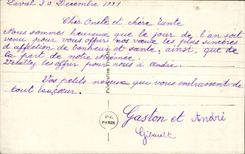 Laval 30 Décembre 1931
Cher Oncle et chère tante
Nous sommes heureux que le jour de l'an soit
venu pour vous offrir nos vœux les plus sincères
d'affection de bonheur et santé, ainsi que de
la part de notre
les offrir pour nous à
Vos petits neveux qui vous embrassent de
tout leur cœur.
Gaston et André